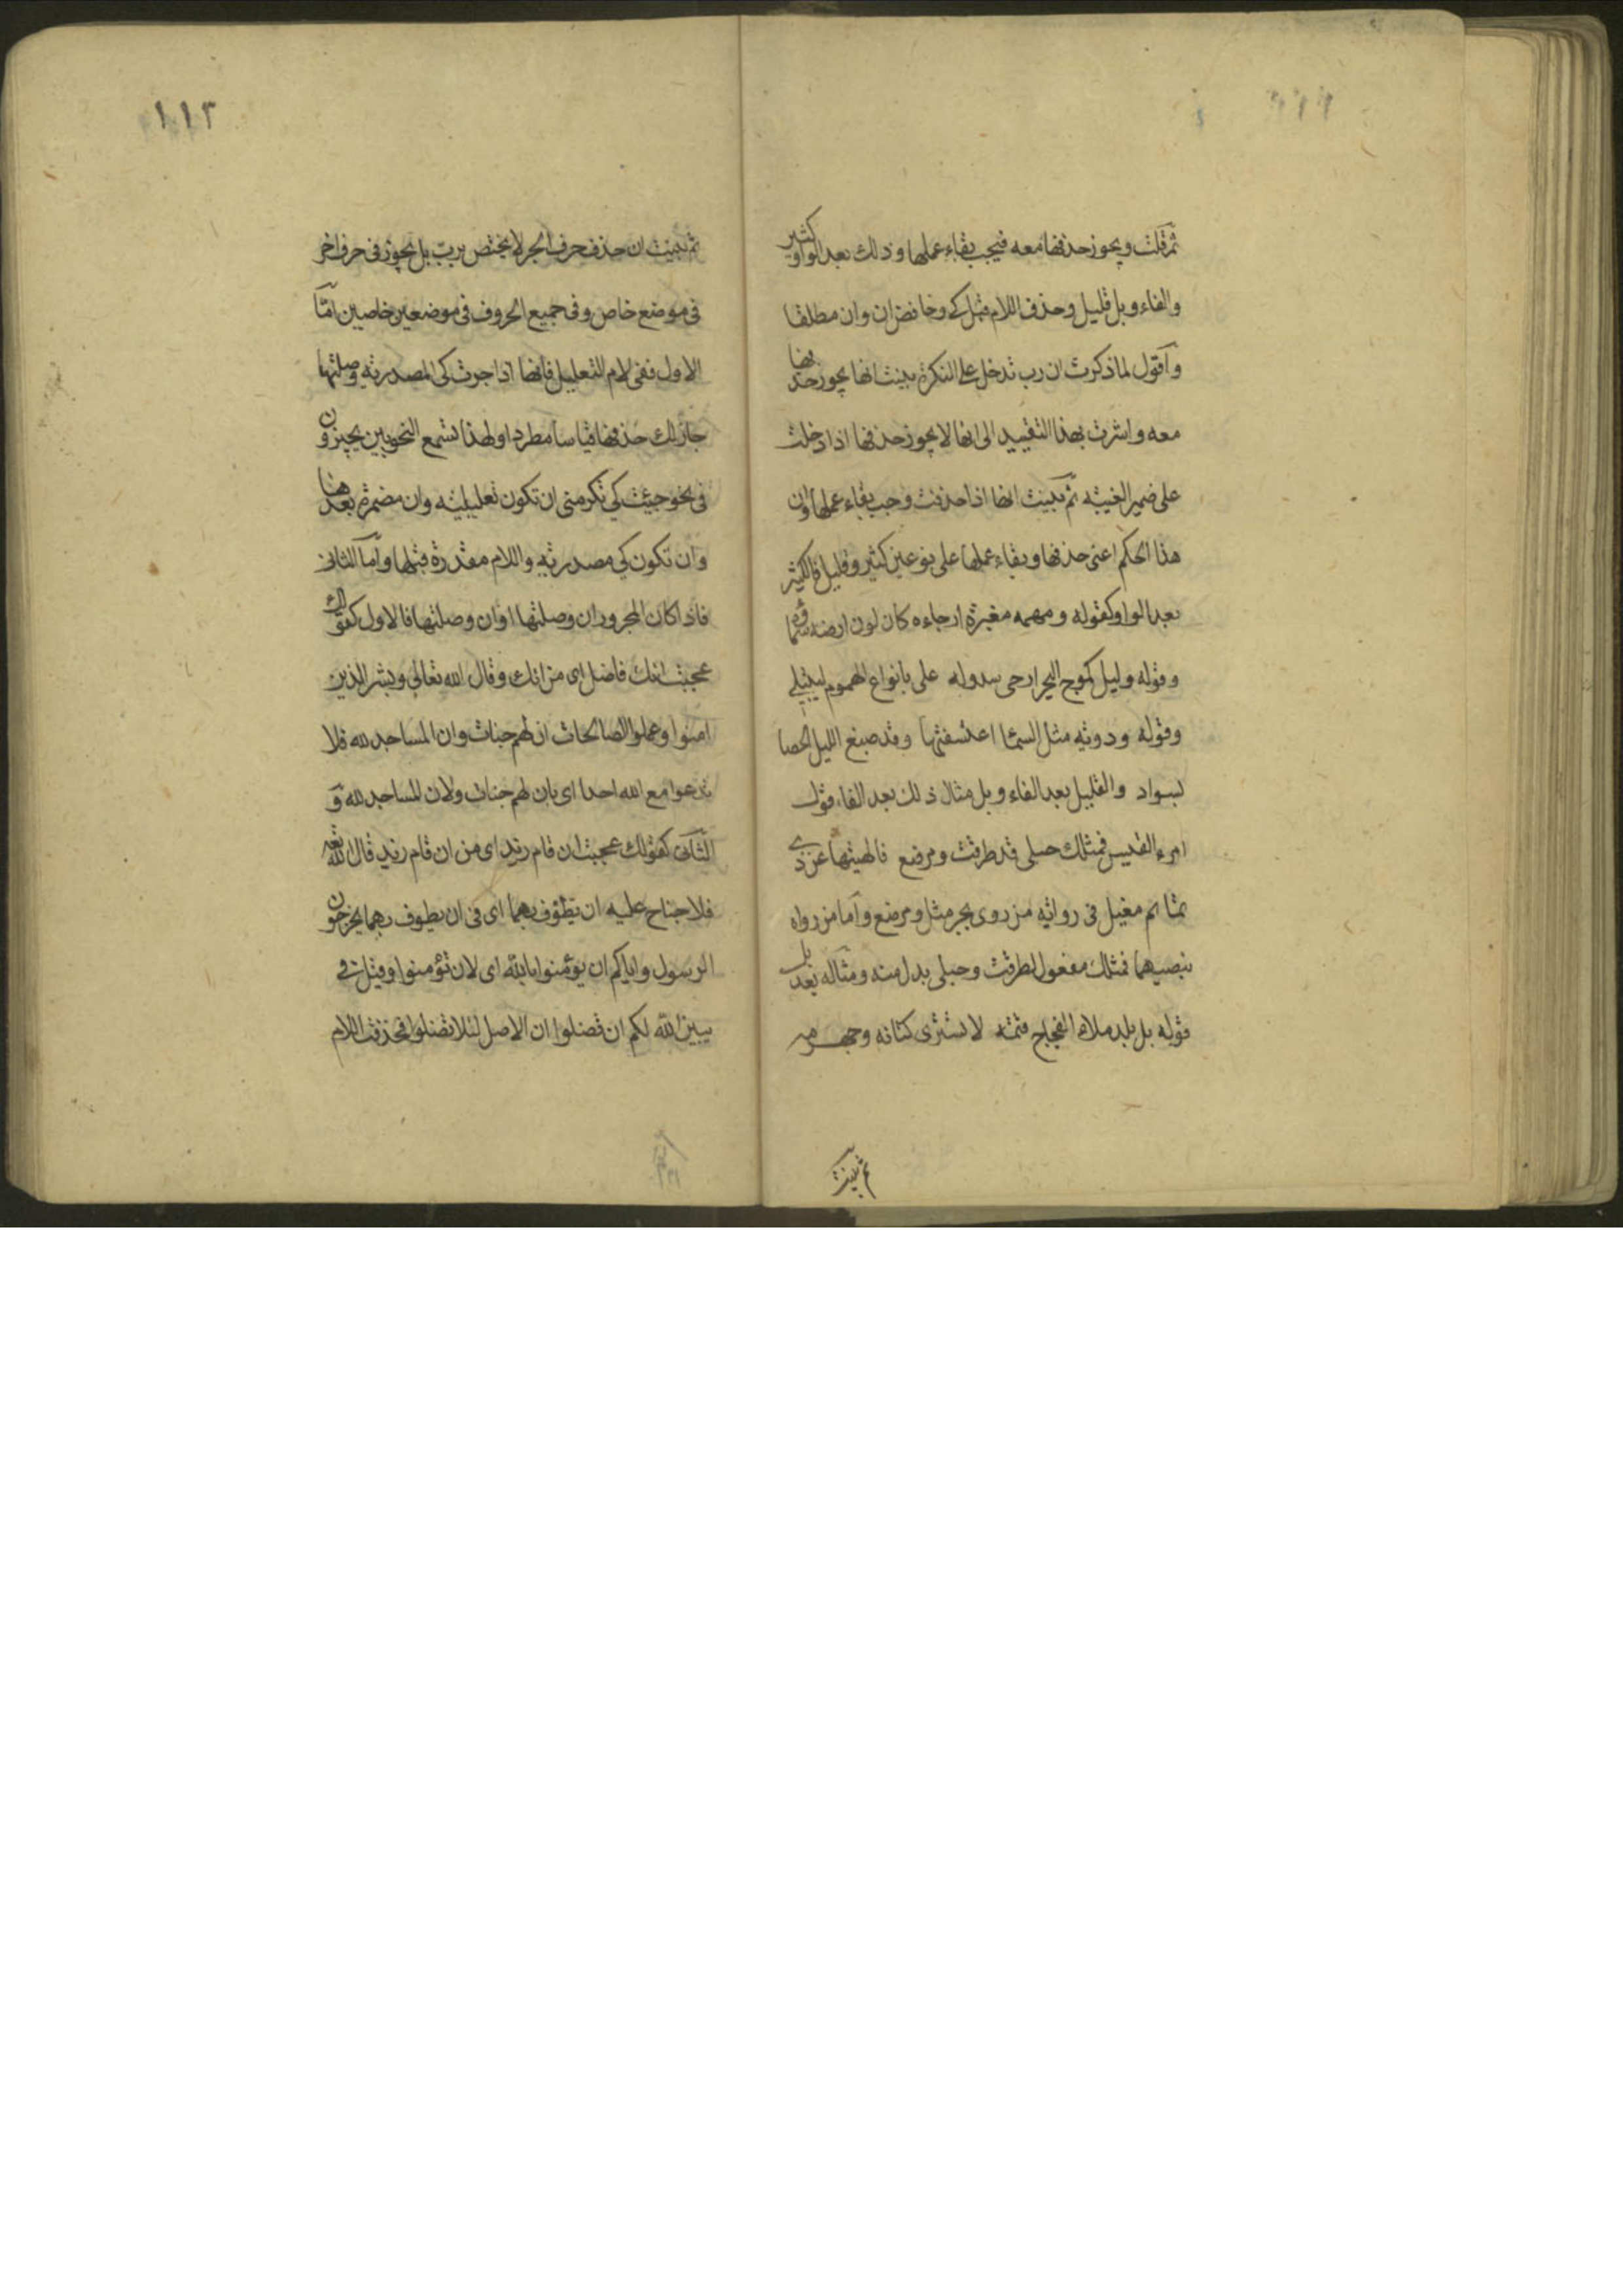 ثم قلت ويجوز حذفها معه فيجب بقاء عملها وذلك بعد الواو كثير
والفاء وبل قليل وحذف اللام قبل كي وخافض ان وان مطلقا
واقول لما ذكرت ان رب تدخل على النكرة بينت انها يجوز حذفها
معه واشرت بهذا التقييد الى انها لا يجوز حذفها اذا دخلت
على ضمير الغيبه ثم بينت انها اذا حذفت وجب بقاء عملها وان
هذا الحكم اعنى حذفها وبقاء عملها على نوعين كثير وقليل فالكثير
بعد الواو كقوله ومهمه مغبرة ارجاءه كان لون ارضه سماؤه
وقوله وليل كموج البحر ارخى سدوله على بانواع الهموم ليبتلي
وقوله ودويه مثل السما اعتسفتها وقد صبغ الليل الحصا
بسواد والقليل بعد الفاء وبل مثال ذلك بعد الفاء قول
امرء القيس فمثلك حبلى قد طرقت ومرضع فالهيتها عن ذي
تمائم مغيل فى روايه من روى بجر مثل ومرضع واما من رواه
بنصبهما فمثلك مفعول لطرقت وحبلى بدل منه ومثاله بعد بل
قوله بل بلد ملاء الفجاج قتمه لا تشترى كتانه وجهرمه
ثم بينت
١١٣
ثم بينت ان حذف حرف الجر لا يختص برب بل يجوز فى حرف اخر
فى موضع خاص وفى جميع الحروف فى موضعين خاصين اما
الاول ففى لام التعليل فانها اذا جرت كى المصدريه وصلتها
جاز لك حذفها قياسا مطردا ولهذا تسمع النحويين يجيزون
فى نحو جئت كي تكرمنى ان تكون تعليليه وان مضمرة بعدها
وان تكون كي مصدريه واللام مقدرة قبلها واما الثانى
فاذا كان المجرور ان وصلتها او ان وصلتها فالاول كقولك
عجبت انك فاضل اى من انك وقال الله تعالى وبشر الذين
امنوا وعملوا الصالحات ان لهم جنات وان المساجد لله فلا
تدعوا مع الله احدا اى بان لهم جنات ولان المساجد لله و
الثانى كقولك عجبت ان قام زيد اى من ان قام زيد قال الله تعه
فلا جناح عليه ان يطوف بهما اى فى ان يطوف بهما يخرجون
الرسول واياكم ان تؤمنوا بالله اى لان تؤمنوا وقيل في
يبين الله لكم ان تضلوا ان الاصل لئلا تضلوا فحذفت اللام